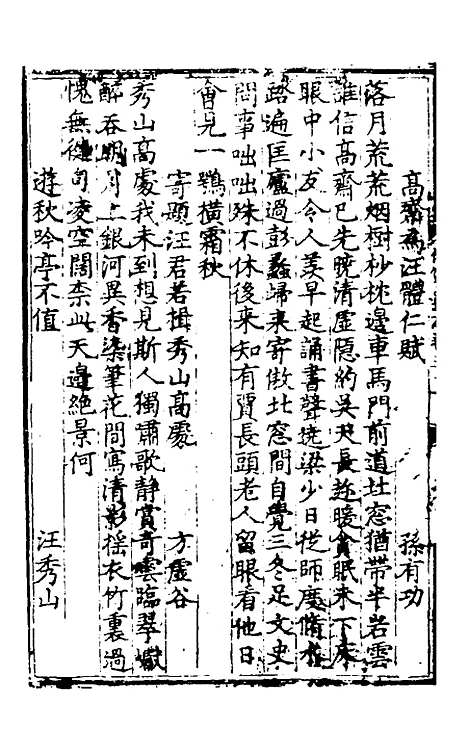 高齋為汪體仁賦　孫有功
落月荒荒烟樹杪枕邊車馬門前道北窓猶帶半岩雲
誰信高齋已先曉清虛隱約吳天長延暖貪眠来下床
眼中小友令人羡早起誦書聲繞梁少日從師廬脩水
路遍匡廬過彭蠡歸来寄傲北窓間自覺三冬足文史
問事咄咄殊不休後来知有賈長頭老人留眼看他日
會見一鶚橫霜秋
寄題汪君若楫秀山高處　方虛谷
秀山高處我未到想見斯人獨嘯歌静賞奇雲臨翠巘
醉吞明月上銀河異香染筆花間寫清影揺衣竹裏過
愧無健句凌空闊柰此天邉絶景何
遊秋吟亭不值　汪秀山